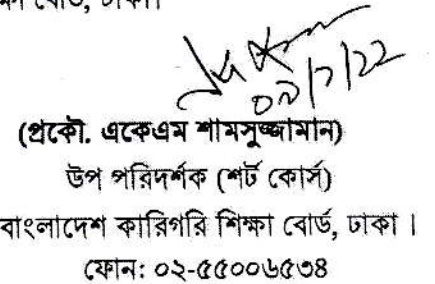 বোর্ড, ঢাকা।
০৯/১/22
(প্রকৌ. একেএম শামসুজ্জামান)
উপ পরিদর্শক (শর্ট কোর্স)
বাংলাদেশ কারিগরি শিক্ষা বোর্ড, ঢাকা ।
ফোন: ০২-৫৫০০৬৫৩৪